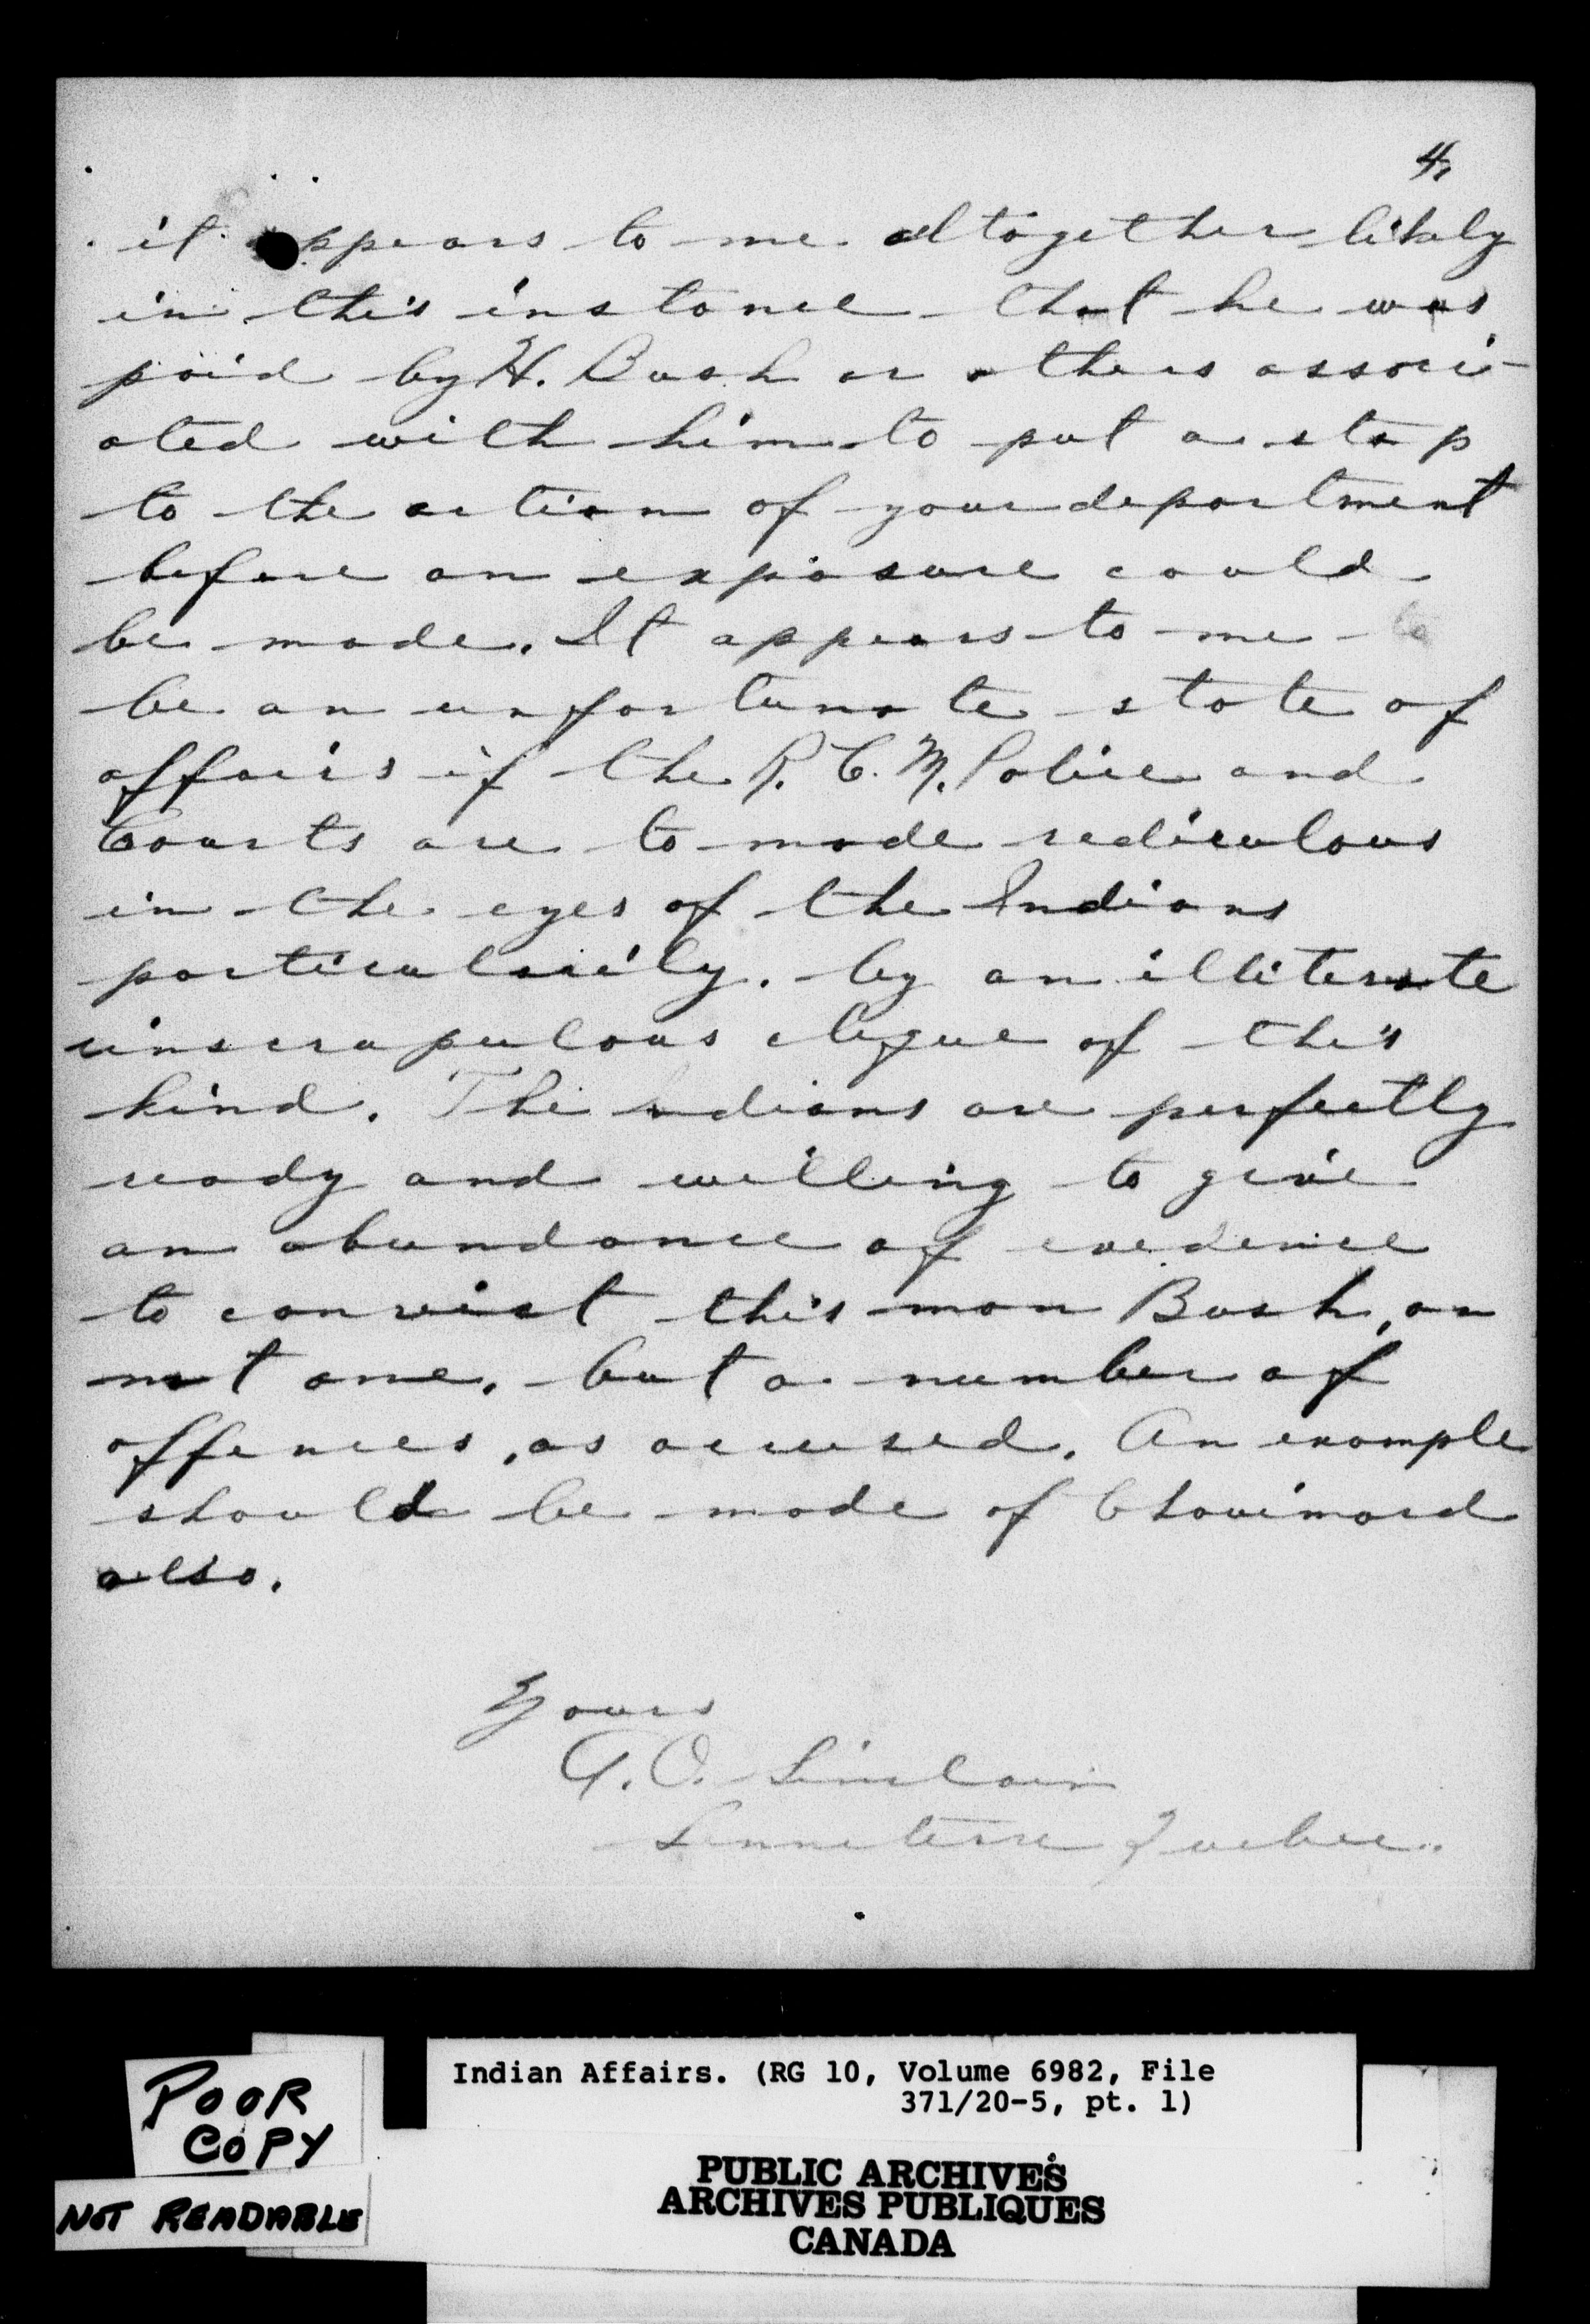 4,
it appears to me altogether likely
in this instance that he was
paid by H. Bush or others associ-
ated with him to put a stop
to the action of your department
before an exposure could
be made. It appears to me to
be an unfortunate state of
affairs if the R. C. M. Police and
Courts are to made rediculous
in the eyes of the Indians
particularily. by an illiterate
unscrupulous clique of this
kind. The Indians are perfectly
ready and willing to give
an abundance of evedence
to convict this man Bush, on
not one, but a number of
offences, as accused. An example
should be made of Chouimard
also.
Yours
G. O. Sinclair
Senneterre Quebec.
POOR
COPY
NOT READABLE
Indian Affairs. (RG 10, Volume 6982, File
371/20-5, pt. 1)
PUBLIC ARCHIVES
ARCHIVES PUBLIQUES
CANADA